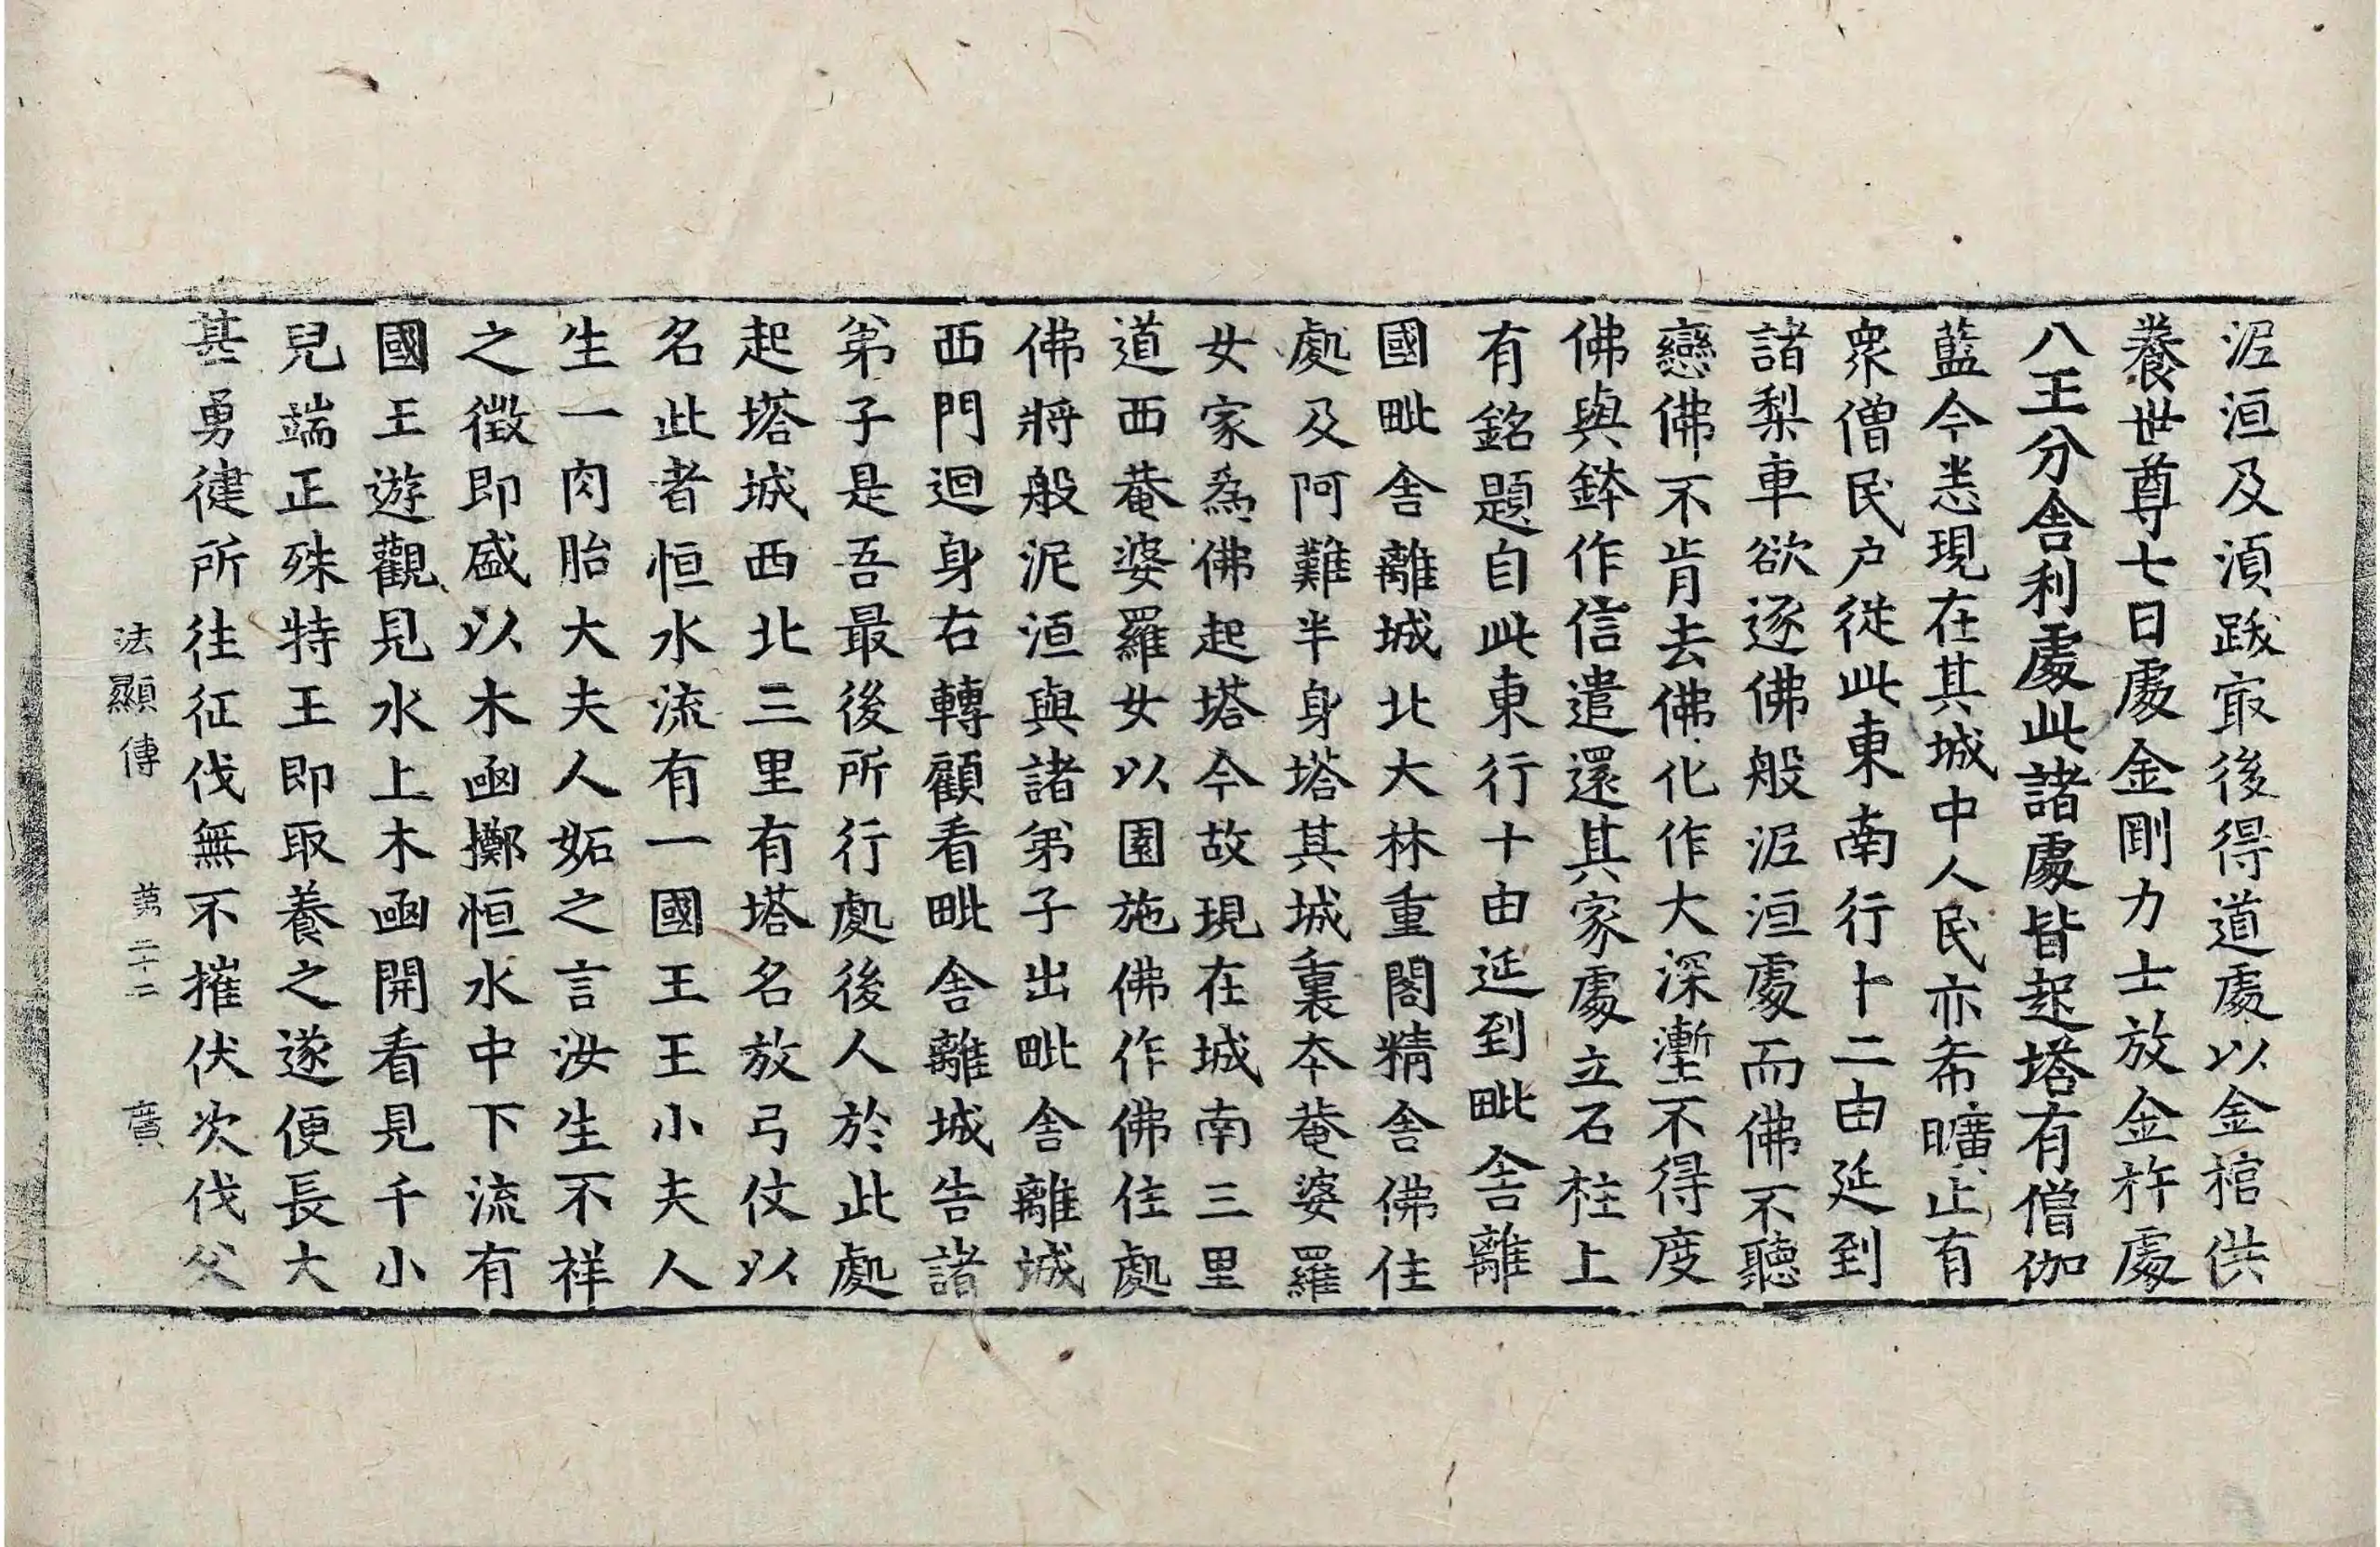 泥洹及湏跋㝡後得道處以金棺供
養世尊七日處金剛力士放金杵處
八王分舍利處此諸處皆起塔有僧伽
藍今悉現在其城中人民亦希曠止有
衆僧民戶從此東南行十二由延到
諸梨車欲逐佛般泥洹處而佛不聽
戀佛不肯去佛化作大深壍不得度
佛與鉢作信遣還其家處立石柱上
有銘題自此東行十由延到毗舍離
國毗舍離城北大林重閣精舍佛住
處及阿難半身塔其城裏本菴婆羅
女家爲佛起塔今故現在城南三里
道西菴婆羅女以園施佛作佛住處
佛將般泥洹與諸弟子出毗舍離城
西門迴身右轉顧看毗舍離城告諸
弟子是吾最後所行處後人於此處
起塔城西北三里有塔名放弓仗以
名此者恒水流有一國王王小夫人
生一肉胎大夫人妬之言汝生不祥
之徵即盛以木函擲恒水中下流有
國王遊觀見水上木函開看見千小
兒端正殊特王即取養之遂便長大
甚勇健所往征伐無不摧伏次伐父
法顯傳 苐二十二 廣